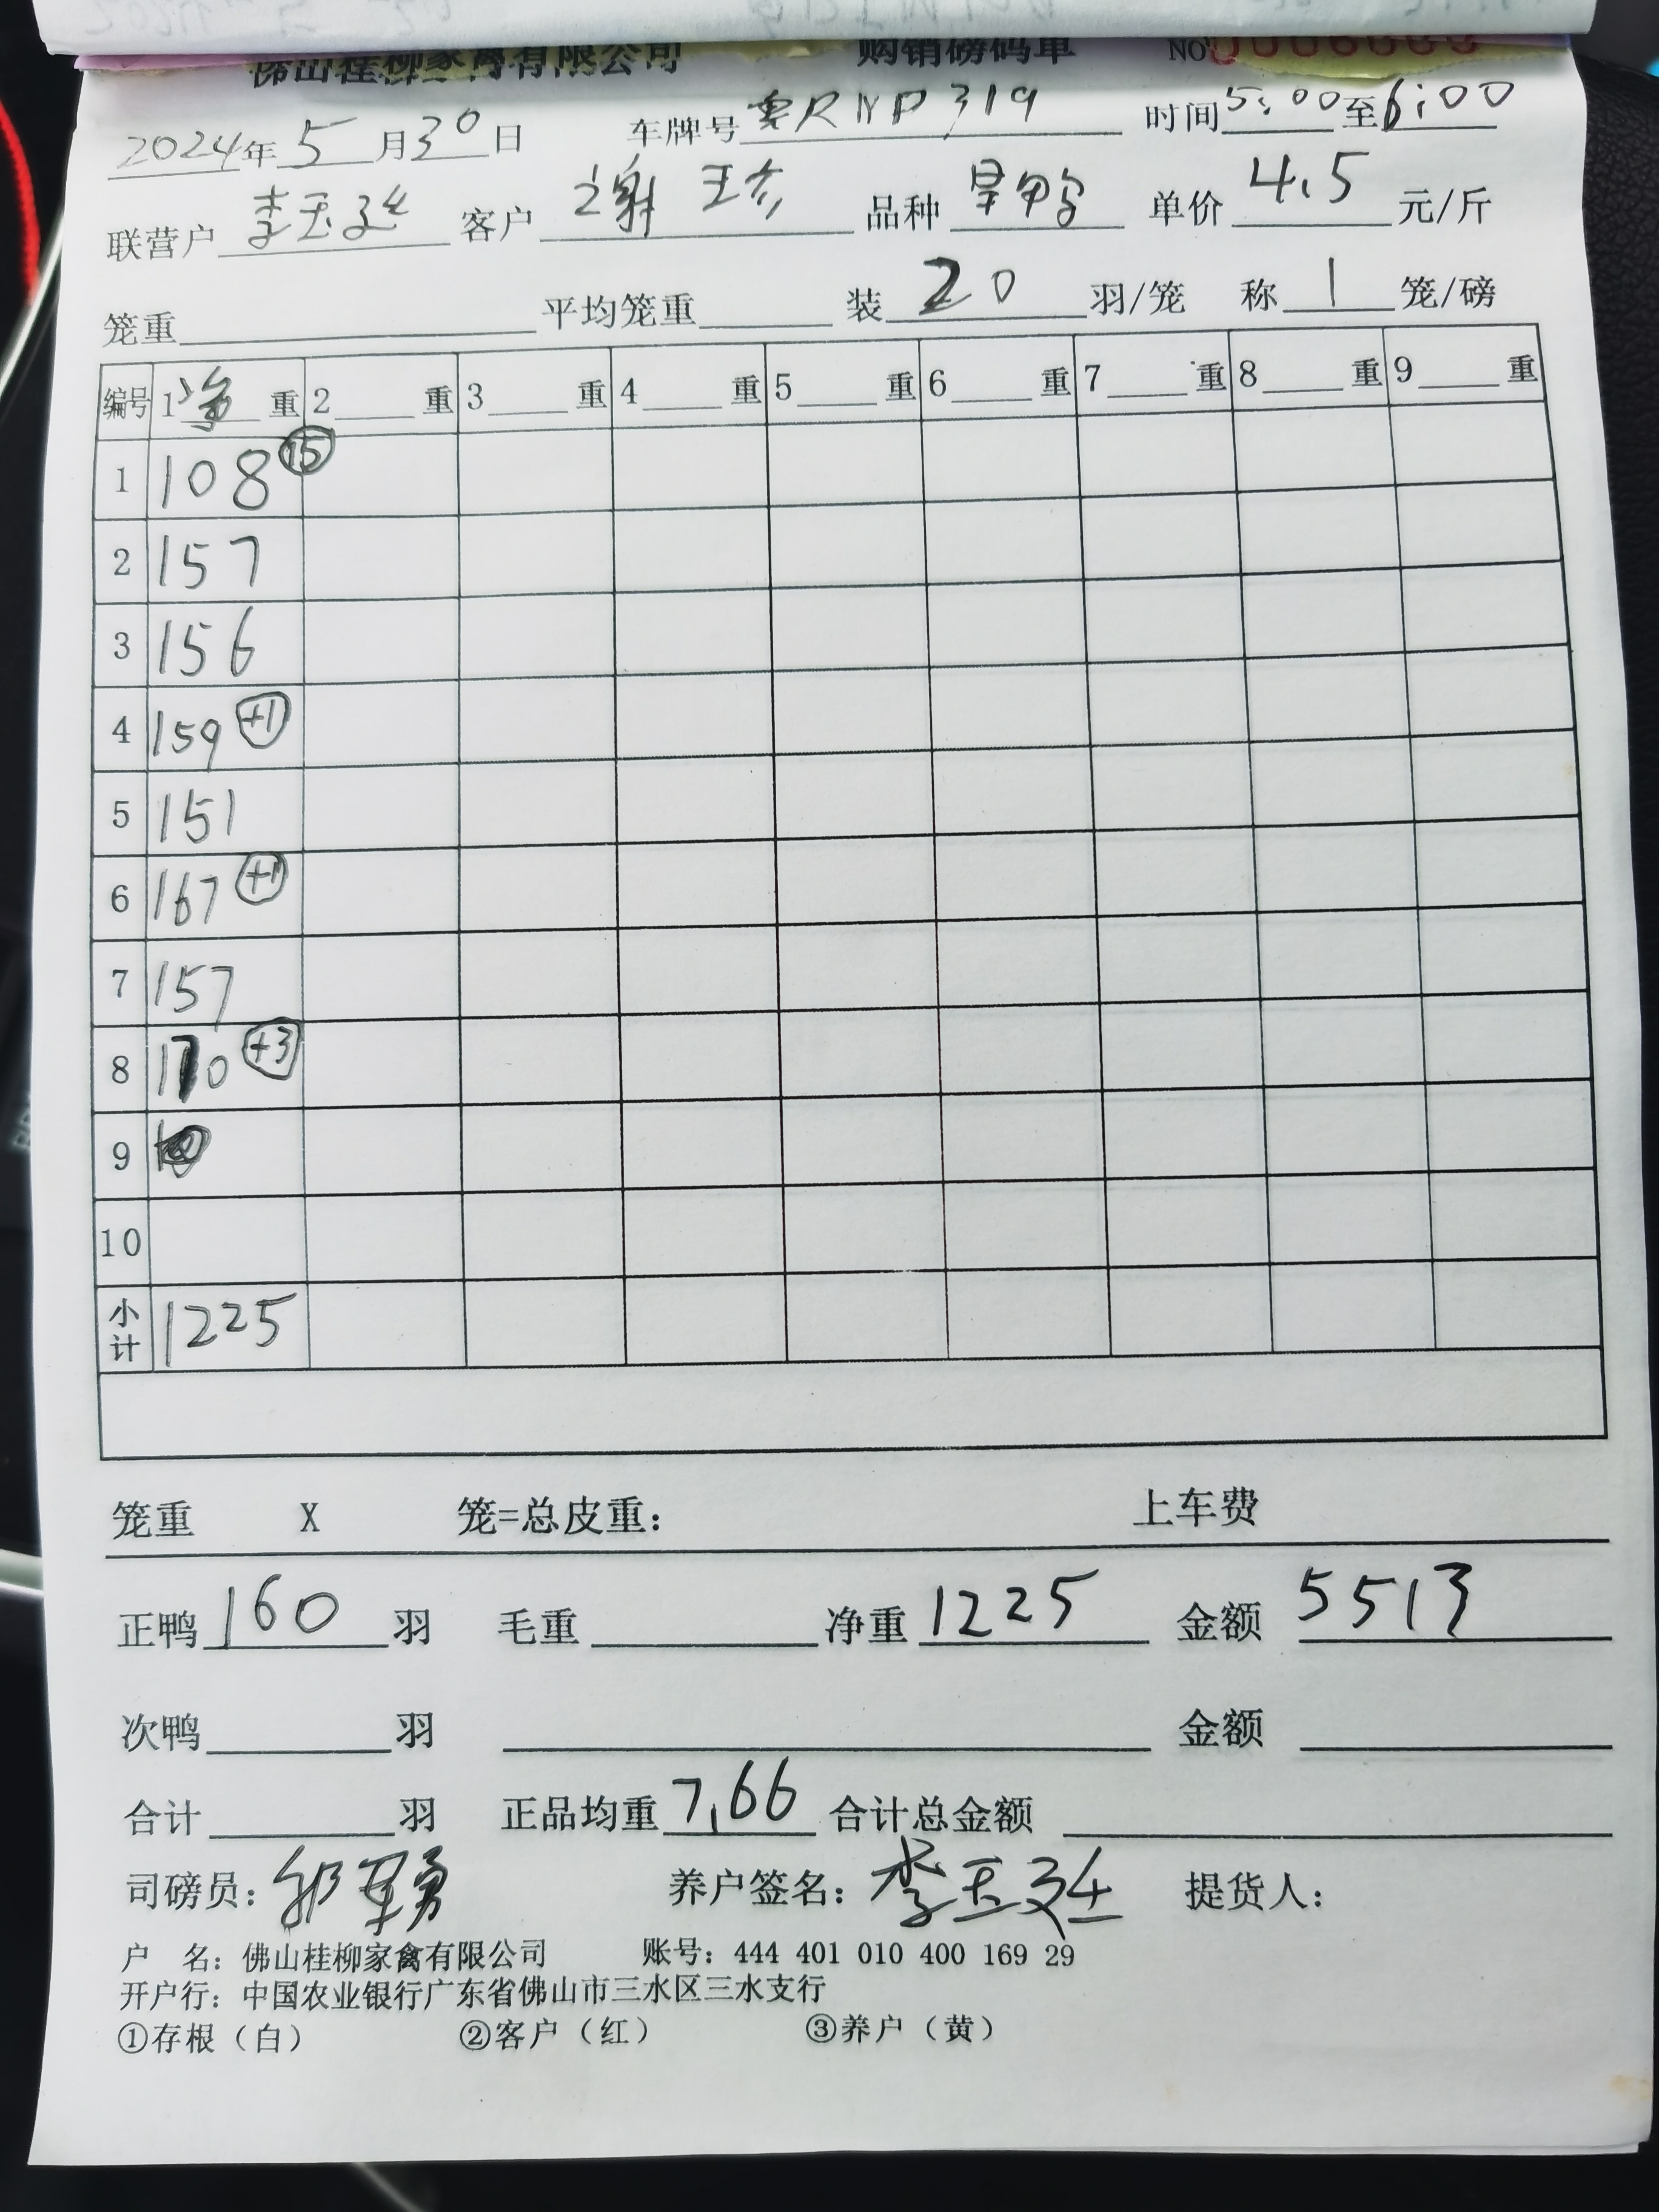 佛山桂柳家禽有限公司 购销磅码单 NO
2024年5月30日 车牌号 粤R 319 时间5:00至6:00
联营户 李玉廷 客户 谢 品种 旱鸭 单价 4.5 元/斤
笼重 平均笼重 装 20 羽/笼 称 1 笼/磅
编号 1 净 重 2 重 3 重 4 重 5 重 6 重 7 重 8 重 9 重
1 108 ⑮
2 157
3 156
4 159 +1
5 151
6 167 +1
7 157
8 170 +3
9
10
小计 1225
笼重 X 笼=总皮重: 上车费
正鸭 160 羽 毛重 净重 1225 金额 5513
次鸭 羽 金额
合计 羽 正品均重 7.66 合计总金额
司磅员: 军勇 养户签名: 李玉廷 提货人:
户 名: 佛山桂柳家禽有限公司 账号: 444 401 010 400 169 29
开户行: 中国农业银行广东省佛山市三水区三水支行
①存根（白） ②客户（红） ③养户（黄）